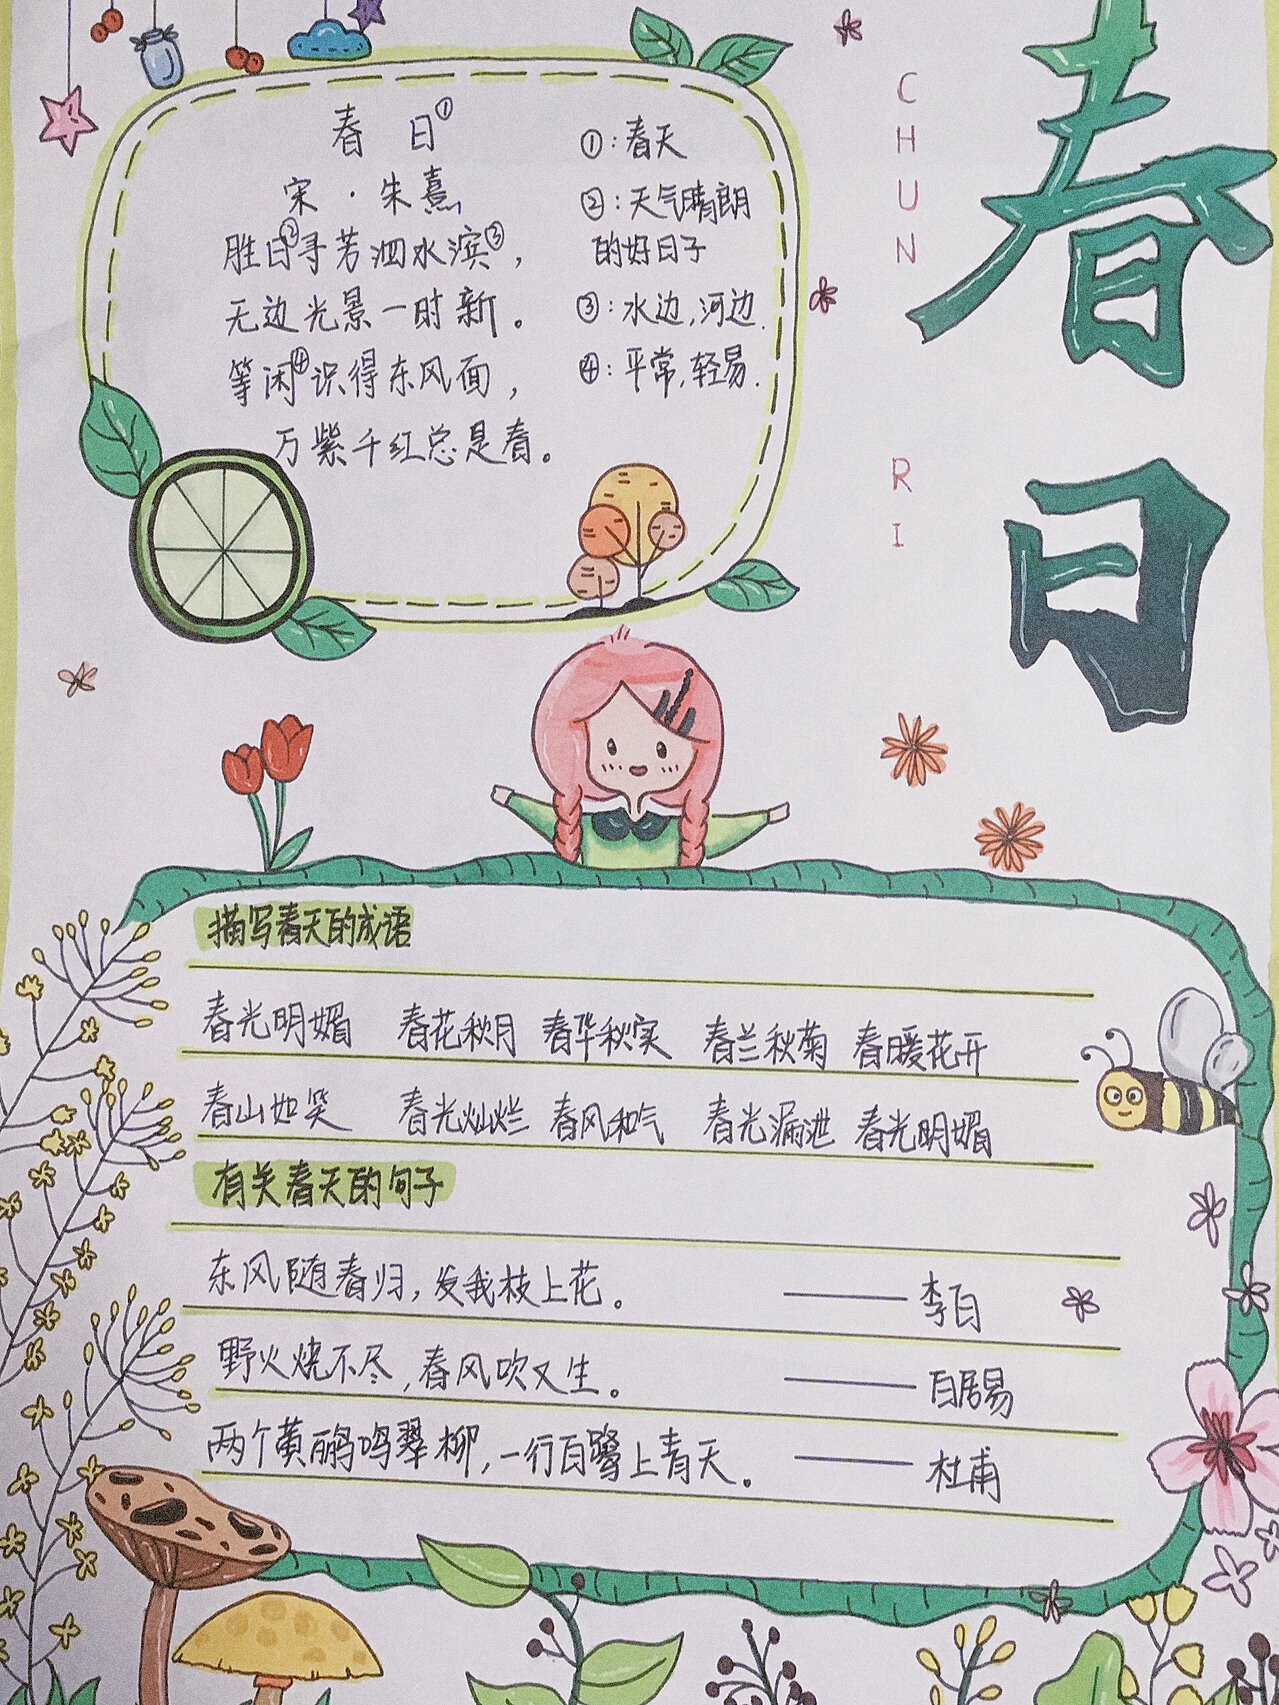 春日
CHUN
RI
春 日①
宋·朱熹
胜日②寻芳泗水滨③，
无边光景一时新。
等闲④识得东风面，
万紫千红总是春。
①:春天
②:天气晴朗
的好日子
③:水边,河边.
④:平常,轻易.
描写春天的成语
春光明媚 春花秋月 春华秋实 春兰秋菊 春暖花开
春山如笑 春光灿烂 春风和气 春光漏泄 春光明媚
有关春天的句子
东风随春归,发我枝上花。 ——李白
野火烧不尽,春风吹又生。 ——白居易
两个黄鹂鸣翠柳,一行白鹭上青天。 ——杜甫